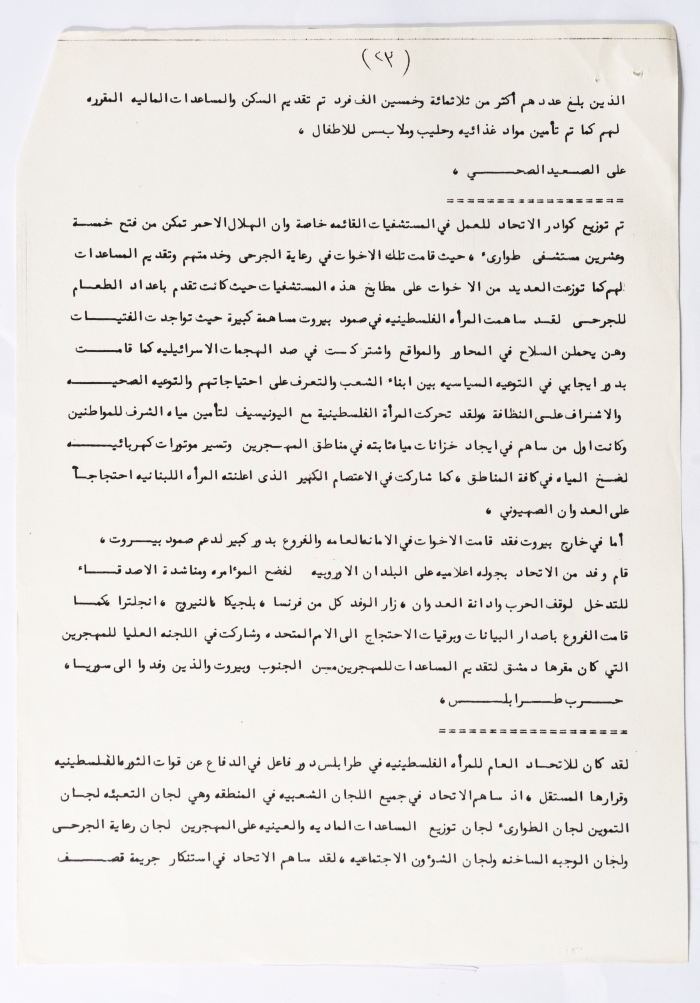 (٢٣)
الذين بلغ عددهم أكثر من ثلاثمائة وخمسين الف فرد تم تقديم السكن والمساعدات الماليه المقرره
لهم كما تم تأمين مواد غذائيه وحليب وملابس للاطفال ،
على الصعيد الصحـــــــي ،
==================
تم توزيع كوادر الاتحاد للعمل في المستشفيات القائمه خاصة وان الهلال الاحمر تمكن من فتح خمســة
وعشرين مستشفى طوارىء ، حيث قامت تلك الاخوات في رعاية الجرحى وخدمتهم وتقديم المساعدات
لهم كما توزعت العديد من الاخوات على مطابخ هذه المستشفيات حيث كانت تقدم باعداد الطعــام
للجرحى لقد ساهمت المرأه الفلسطينيه في صمود بيروت مساهمة كبيرة حيث تواجدت الفتيــات
وهن يحملن السلاح في المحاور والمواقع واشتركــت في صد الهجمات الاسرائيليه كما قامــــت
بدور ايجابي في التوعيه السياسيه بين ابناء الشعب والتعرف على احتياجاتهم والتوعيه الصحيـــه
والاشراف على النظافة ،ولقد تحركت المرأة الفلسطينية مع اليونيسيف لتأمين مياه الشرف للمواطنين
وكانت اول من ساهم في ايجاد خزانات مياه ثابته في مناطق المهجرين وتسير موتورات كهربائيـــه
لضخ المياه في كافة المناطق ، كما شاركت في الاعتصام الكبير الذى اعلنته المرأه اللبنانيه احتجاجـاً
على العدوان الصهيوني ،
أما في خارج بيروت فقد قامت الاخوات في الامانه العامه والفروع بدور كبير لدعم صمود بيـــروت ،
قام وفد من الاتحاد بجوله اعلاميه على البلدان الاوروبيه لفضح المؤامره ومناشدة الاصدقــاء
للتدخل لوقف الحرب وادانة العدوان ، زار الوفد كل من فرنسا ، بلجيكا ،النيروج ، انجلترا ،كمــا
قامت الفروع باصدار البيانات وبرقيات الاحتجاج الى الامم المتحده وشاركت في اللجنه العليا للمهجرين
التي كان مقرها دمشق لتقديم المساعدات للمهجرين من الجنوب وبيروت والذين وفدوا الى سوريــا ،
حـــرب طـــرابلـــس ،
===================
لقد كان للاتحاد العام للمرأه الفلسطينيه في طرابلس دور فاعل في الدفاع عن قوات الثوره الفلسطينيه
وقرارها المستقل ، اذ ساهم الاتحاد في جميع اللجان الشعبيه في المنطقه وهي لجان التعبئه لجــان
التموين لجان الطوارىء لجان توزيع المساعدات الماديه والعينيه على المهجرين لجان رعاية الجرحـى
ولجان الوجبه الساخنه ولجان الشوءون الاجتماعيه ، لقد ساهم الاتحاد في استنكار جريمة قصــف